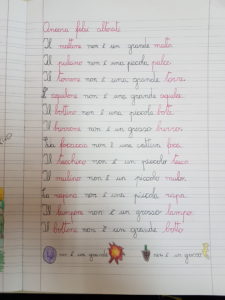 Ancora falsi alterati
Il mattone non è un grande matto.
Il pulcino non è una piccola pulce.
Il torrone non è una grande torre.
L'aquilone non è una grande aquila.
Il bottino non è una piccola botte.
Il burrone non è un grosso burro.
La focaccia non è una cattiva foca.
Il tacchino non è un piccolo tacco.
Il mulino non è un piccolo mulo.
La rapina non è una piccola rapa.
Il lampone non è un grosso lampo.
Il bottone non è un grande botto.
non è un grande
non è un grosso